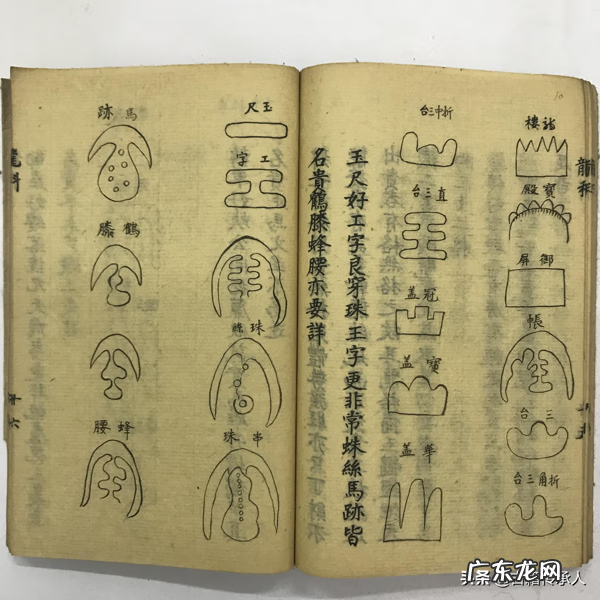 龍樓
寶殿
御屏
帳
三台
折角三台
折中三台
直三台
冠蓋
寶蓋
華蓋
玉尺好工字良穿珠王字更非常蛛絲馬跡皆
名貴鶴膝蜂腰亦要詳
玉尺
工字
珠絲
串珠
馬跡
鶴膝
蜂腰
十六
10
头条@古籍传承人
广东龙网